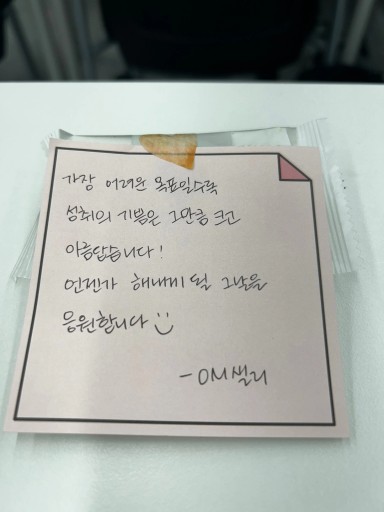 가장 어려운 목표일수록
성취의 기쁨은 그만큼 크고
아름답습니다!
언젠가 해내게 될 그날을
응원합니다 :)
- OM샐리